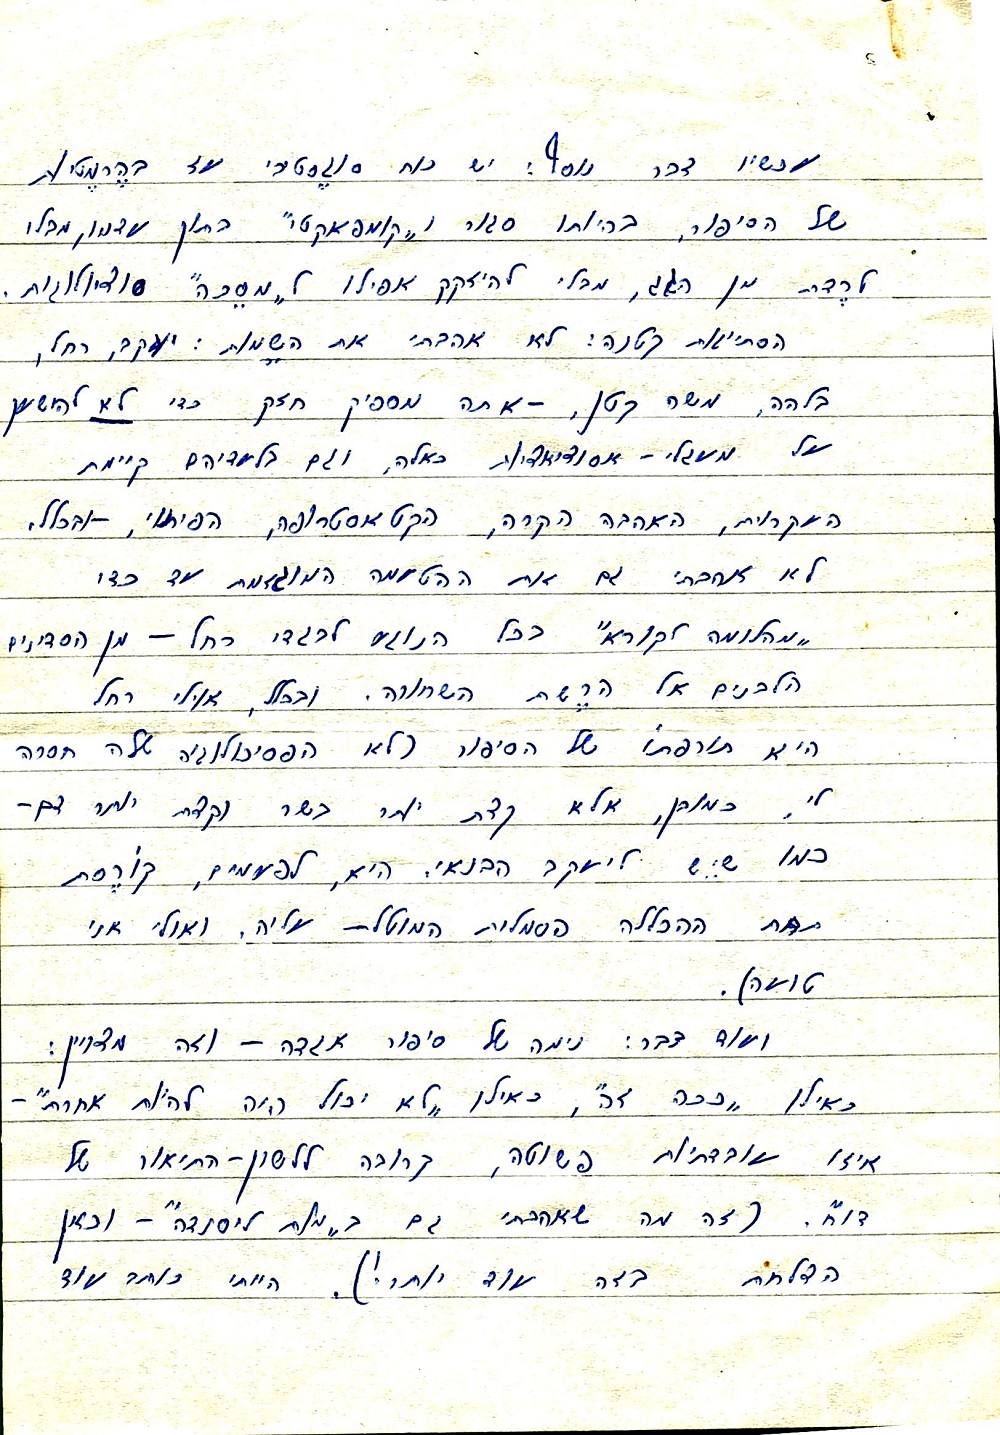 עכשיו דבר נוסף: יש כוח סוגֶסטיבי עז בהֶרמֶטיות
של הסיפור, בהיותו סגור ו„קומפאקטי” בתוך עצמו, מבלי
לרֶדת מן הגג, מבלי להיזקק אפילו ל„מסֵכה” סוציולוגית.
הסתייגות קטנה: לא אהבתי את השֵמות: יעקב, רחל,
בלהה, משה קטן, – אתה מספיק חזק כדי לא להישען
על מעגלי-אסוציאציות כאלה, וגם בלעדיהם קיימת
העקרות, האהבה הקרה, הקטאסטרופה, הפיתוי, – ובכלל.
לא אהבתי גם את ההטעמה המוגזמת עד כדי
„מהלומה לקורא” בכל הנוגע לבגדי רחל – מן הסדינים
הלבנים אל הרֶשת השחורה. ובכלל, אולי רחל
היא תורפתו של הסיפור (לא הפסיכולוגיה שלה חסרה
לי, כמובן, אלא קצת יותר בשר וקצת יותר דם –
כמו שיֵש ליעקב הבנאי. היא, לפעמים, קורֶסת
תחת ההכללה הסמלית המוטלת עליה. ואולי אני
טועה).
ועוד דבר: נימה של סיפור אגדה – וזה מצויין:
כאילו „ככה זה”, כאילו „לא יכול היה להיות אחרת” –
איזו עובדתיות פשוטה, קרובה ללשון-התיאור של
דו״ח. (זה מה שאהבתי גם ב„מות ליסנדה” – וכאן
הצלחת בזה עוד יותר!). הייתי כותב עוד